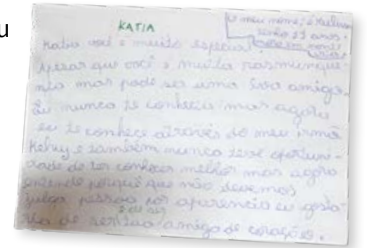 u
KATIA
O meu nome é
tenho 11 anos.
Katia você é muito especial
apesar que você é muito
mas pode ser uma boa amiga.
Eu nunca te conheci mas agora
eu te conheci através do meu irmã
e também nunca teve oportuni-
dade de ter conhecer melhor mas agora
entendo porque que não devemos
julga pessoa por aparencia eu gosta-
ria de ser sua amiga de corações.